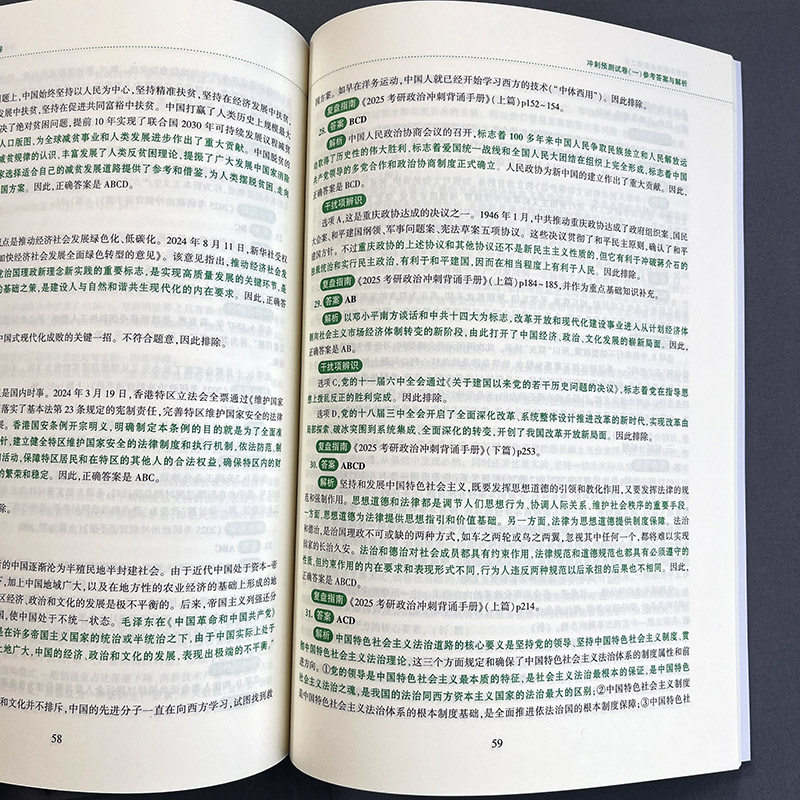 题上，中国始终坚持以人民为中心，坚持精准扶贫，坚持在经济发展中扶贫，
发展中扶贫，坚持在促进共同富裕中扶贫。中国打赢了人类历史上规模最大
决了绝对贫困问题，提前 10 年实现了联合国 2030 年可持续发展议程减贫
人口版图，为全球减贫事业和人类发展进步作出了重大贡献。中国脱贫的
减贫规律的认识，丰富发展了人类反贫困理论，提振了广大发展中国家消除
家选择适合自己的减贫发展道路提供了参考和借鉴，为人类摆脱贫困、走向
国方案。因此，正确答案是 ABCD。
点是推动经济社会发展绿色化、低碳化。2024 年 8 月 11 日，新华社受权
加快经济社会发展全面绿色转型的意见》。该意见指出，推动经济社会发
党治国理政新理念新实践的重要标志，是实现高质量发展的关键环节，是
的基础之策，是建设人与自然和谐共生现代化的内在要求。因此，正确答
中国式现代化成败的关键一招。不符合题意，因此排除。
是国内时事。2024 年 3 月 19 日，香港特区立法会全票通过《维护国家
落实了基本法第 23 条规定的宪制责任，完善特区维护国家安全的法律
展。香港国安条例开宗明义，明确制定本条例的目的就是为了全面准
针，建立健全特区维护国家安全的法律制度和执行机制，依法防范、制
活动，保障特区居民和在特区的其他人的合法权益，确保特区内的财
的繁荣和稳定。因此，正确答案是 ABC。
除。
的中国逐渐沦为半殖民地半封建社会。由于近代中国处于资本-帝
，加上中国地域广大，以及在地方性的农业经济的基础上形成的地
区经济、政治和文化的发展是极不平衡的。后来，帝国主义列强还分
使中国处于不统一状态。毛泽东在《中国革命和中国共产党》
是在许多帝国主义国家的统治或半统治之下，由于中国实际上处于
土地广大，中国的经济、政治和文化的发展，表现出极端的不平衡。”
和文化并不排斥，中国的先进分子一直在向西方学习，试图找到救
58
冲刺预测试卷（一）参考答案与解析
国方案。如早在洋务运动，中国人就已经开始学习西方的技术（“中体西用”）。因此排除。
复盘指南 《2025 考研政治冲刺背诵手册》（上篇）p152～154。
28. 答案 BCD
解析 中国人民政治协商会议的召开，标志着 100 多年来中国人民争取民族独立和人民解放运
动取得了历史性的伟大胜利，标志着爱国统一战线和全国人民大团结在组织上完全形成，标志着中国
共产党领导的多党合作和政治协商制度正式确立。人民政协为新中国的建立作出了重大贡献。因此，
正确答案是 BCD。
干扰项辨识
选项 A，这是重庆政协达成的决议之一。1946 年 1 月，中共推动重庆政协达成了政府组织案、国民
大会案、和平建国纲领、军事问题案、宪法草案五项协议。这些决议贯彻了和平民主原则，确认了和平
建国方针。不过重庆政协的上述协议和其他协议还不是新民主主义性质的，但它有利于冲破蒋介石的
独裁统治和实行民主政治，有利于和平建国，因而在相当程度上有利于人民。因此排除。
复盘指南 《2025 考研政治冲刺背诵手册》（上篇）p184～185，并作为重点基础知识补充。
29. 答案 AB
解析 以邓小平南方谈话和中共十四大为标志，改革开放和现代化建设事业进入从计划经济体
制向社会主义市场经济体制转变的新阶段，由此打开了中国经济、政治、文化发展的崭新局面。因此，
正确答案是 AB。
干扰项辨识
选项 C，党的十一届六中全会通过《关于建国以来党的若干历史问题的决议》，标志着党在指导思
想上拨乱反正的胜利完成。因此排除。
选项 D，党的十八届三中全会开启了全面深化改革、系统整体设计推进改革的新时代，实现改革由
局部探索、破冰突围到系统集成、全面深化的转变，开创了我国改革开放新局面。因此排除。
复盘指南 《2025 考研政治冲刺背诵手册》（下篇）p253。
30. 答案 ABCD
解析 坚持和发展中国特色社会主义，既要发挥思想道德的引领和教化作用，又要发挥法律的规
范和强制作用。思想道德和法律都是调节人们思想行为、协调人际关系、维护社会秩序的重要手段。
一方面，思想道德为法律提供思想指引和价值基础。另一方面，法律为思想道德提供制度保障。法治
和德治，是治国理政不可或缺的两种方式，如车之两轮或鸟之两翼，忽视其中任何一个，都将难以实现
国家的长治久安。法治和德治对社会成员都具有约束作用，法律规范和道德规范也都具有必须遵守的
性质，但约束作用的内在要求和表现形式不同，行为人违反两种规范以后承担的后果也不相同。因此，
正确答案是 ABCD。
复盘指南 《2025 考研政治冲刺背诵手册》（上篇）p214。
31. 答案 ACD
解析 中国特色社会主义法治道路的核心要义是坚持党的领导、坚持中国特色社会主义制度、贯
彻中国特色社会主义法治理论，这三个方面规定和确保了中国特色社会主义法治体系的制度属性和前
进方向。①党的领导是中国特色社会主义最本质的特征，是社会主义法治最根本的保证，是中国特色
社会主义法治之魂，是我国的法治同西方资本主义国家的法治最大的区别；②中国特色社会主义制度
是中国特色社会主义法治体系的根本制度基础，是全面推进依法治国的根本制度保障；③中国特色社
59